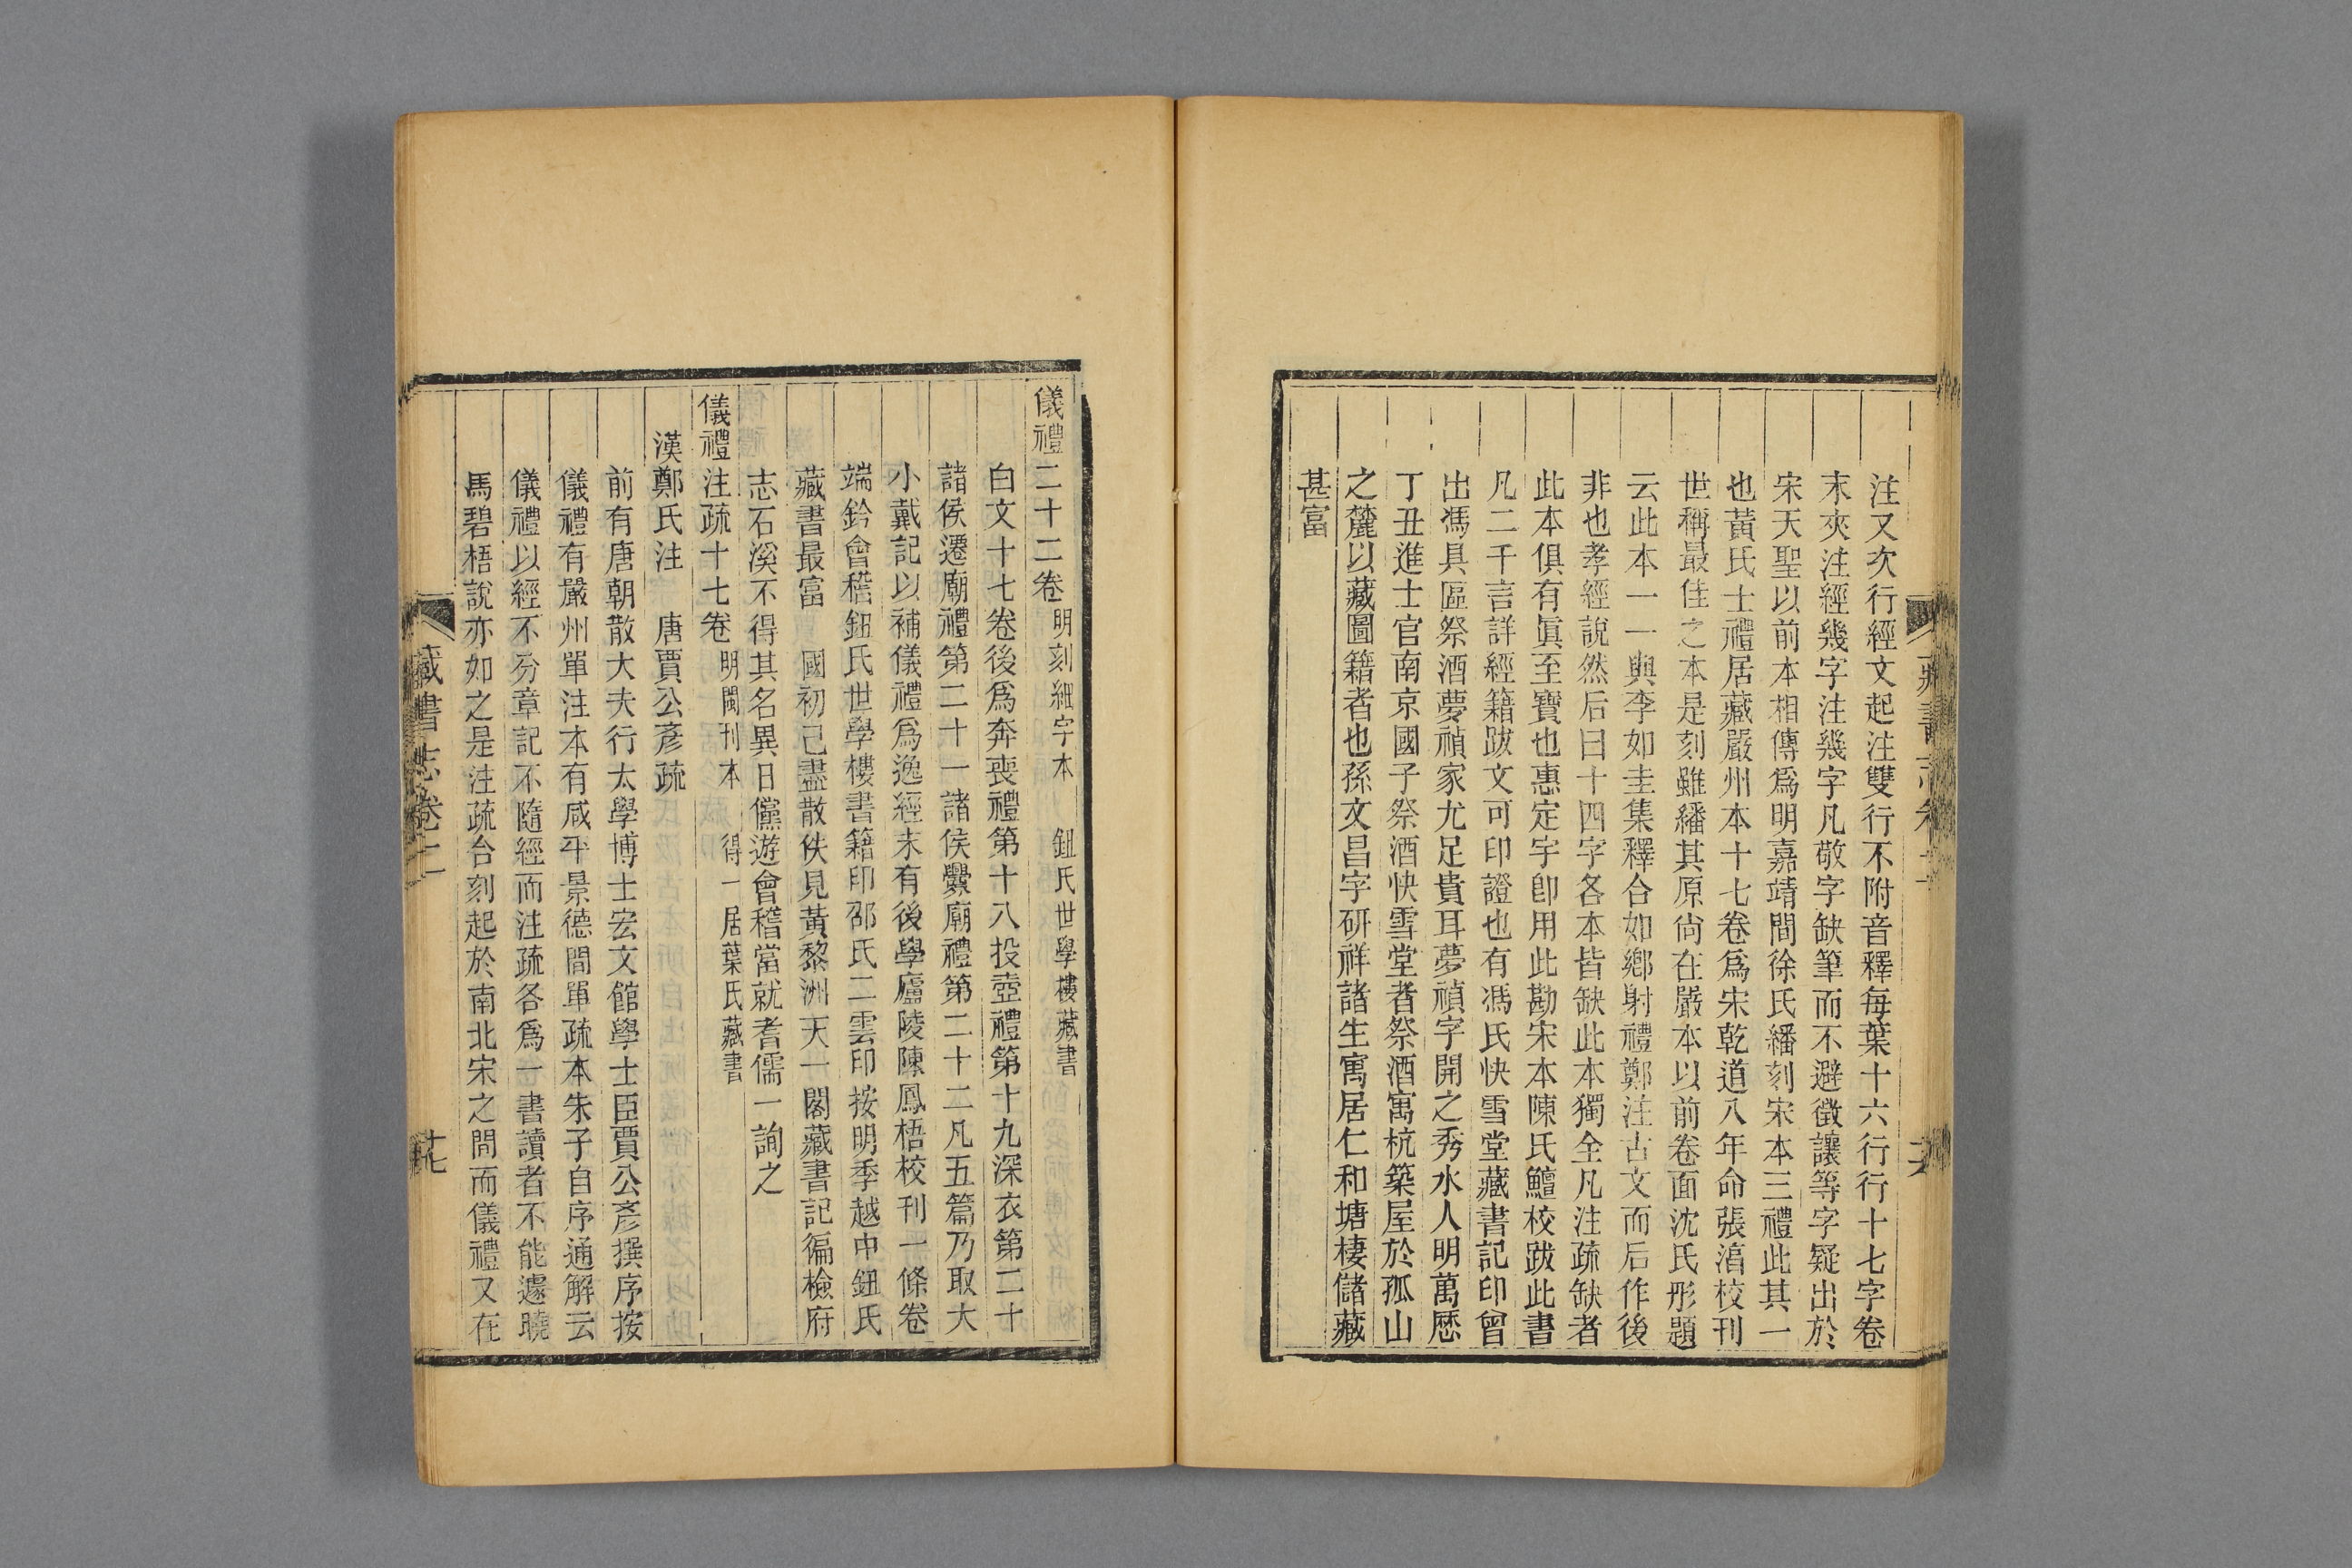 注又次行經文起注雙行不附音釋每葉十六行行十七字卷
末夾注經幾字注幾字凡敬字缺筆而不避徵讓等字疑出於
宋天聖以前本相傳爲明嘉靖間徐氏繙刻宋本三禮此其一
也黃氏士禮居藏嚴州本十七卷爲宋乾道八年命張淯校刊
世稱最佳之本是刻雖繙其原尙在嚴本以前卷面沈氏彤題
云此本一一與李如圭集釋合如鄉射禮鄭注古文而后作後
非也孝經說然后曰十四字各本皆缺此本獨全凡注疏缺者
此本俱有眞至寶也惠定宇卽用此勘宋本陳氏鱣校跋此書
凡二千言詳經籍跋文可印證也有馮氏快雪堂藏書記印曾
出馮具區祭酒夢禎家尤足貴耳夢禎字開之秀水人明萬厯
丁丑進士官南京國子祭酒快雪堂者祭酒寓杭築屋於孤山
之麓以藏圖籍者也孫文昌字研祥諸生寓居仁和塘棲儲藏
甚富
藏書志卷二
儀禮二十二卷 明刻細字本 鈕氏世學樓藏書
白文十七卷後爲奔喪禮第十八投壺禮第十九深衣第二十
諸侯遷廟禮第二十一諸侯釁廟禮第二十二凡五篇乃取大
小戴記以補儀禮爲逸經末有後學廬陵陳鳳梧校刊一條卷
端鈐會稽鈕氏世學樓書籍印邵氏二雲印按明季越中鈕氏
藏書最富 國初已盡散佚見黃黎洲天一閣藏書記徧檢府
志石溪不得其名異日儻遊會稽當就耆儒一詢之
儀禮注疏十七卷 明閩刊本 得一居葉氏藏書
漢鄭氏注 唐賈公彥疏
前有唐朝散大夫行太學博士宏文館學士臣賈公彥撰序按
儀禮有嚴州單注本有咸平景德間單疏本朱子自序通解云
儀禮以經不分章記不隨經而注疏各爲一書讀者不能遽曉
馬碧梧說亦如之是注疏合刻起於南北宋之間而儀禮又在
藏書志卷二 十七